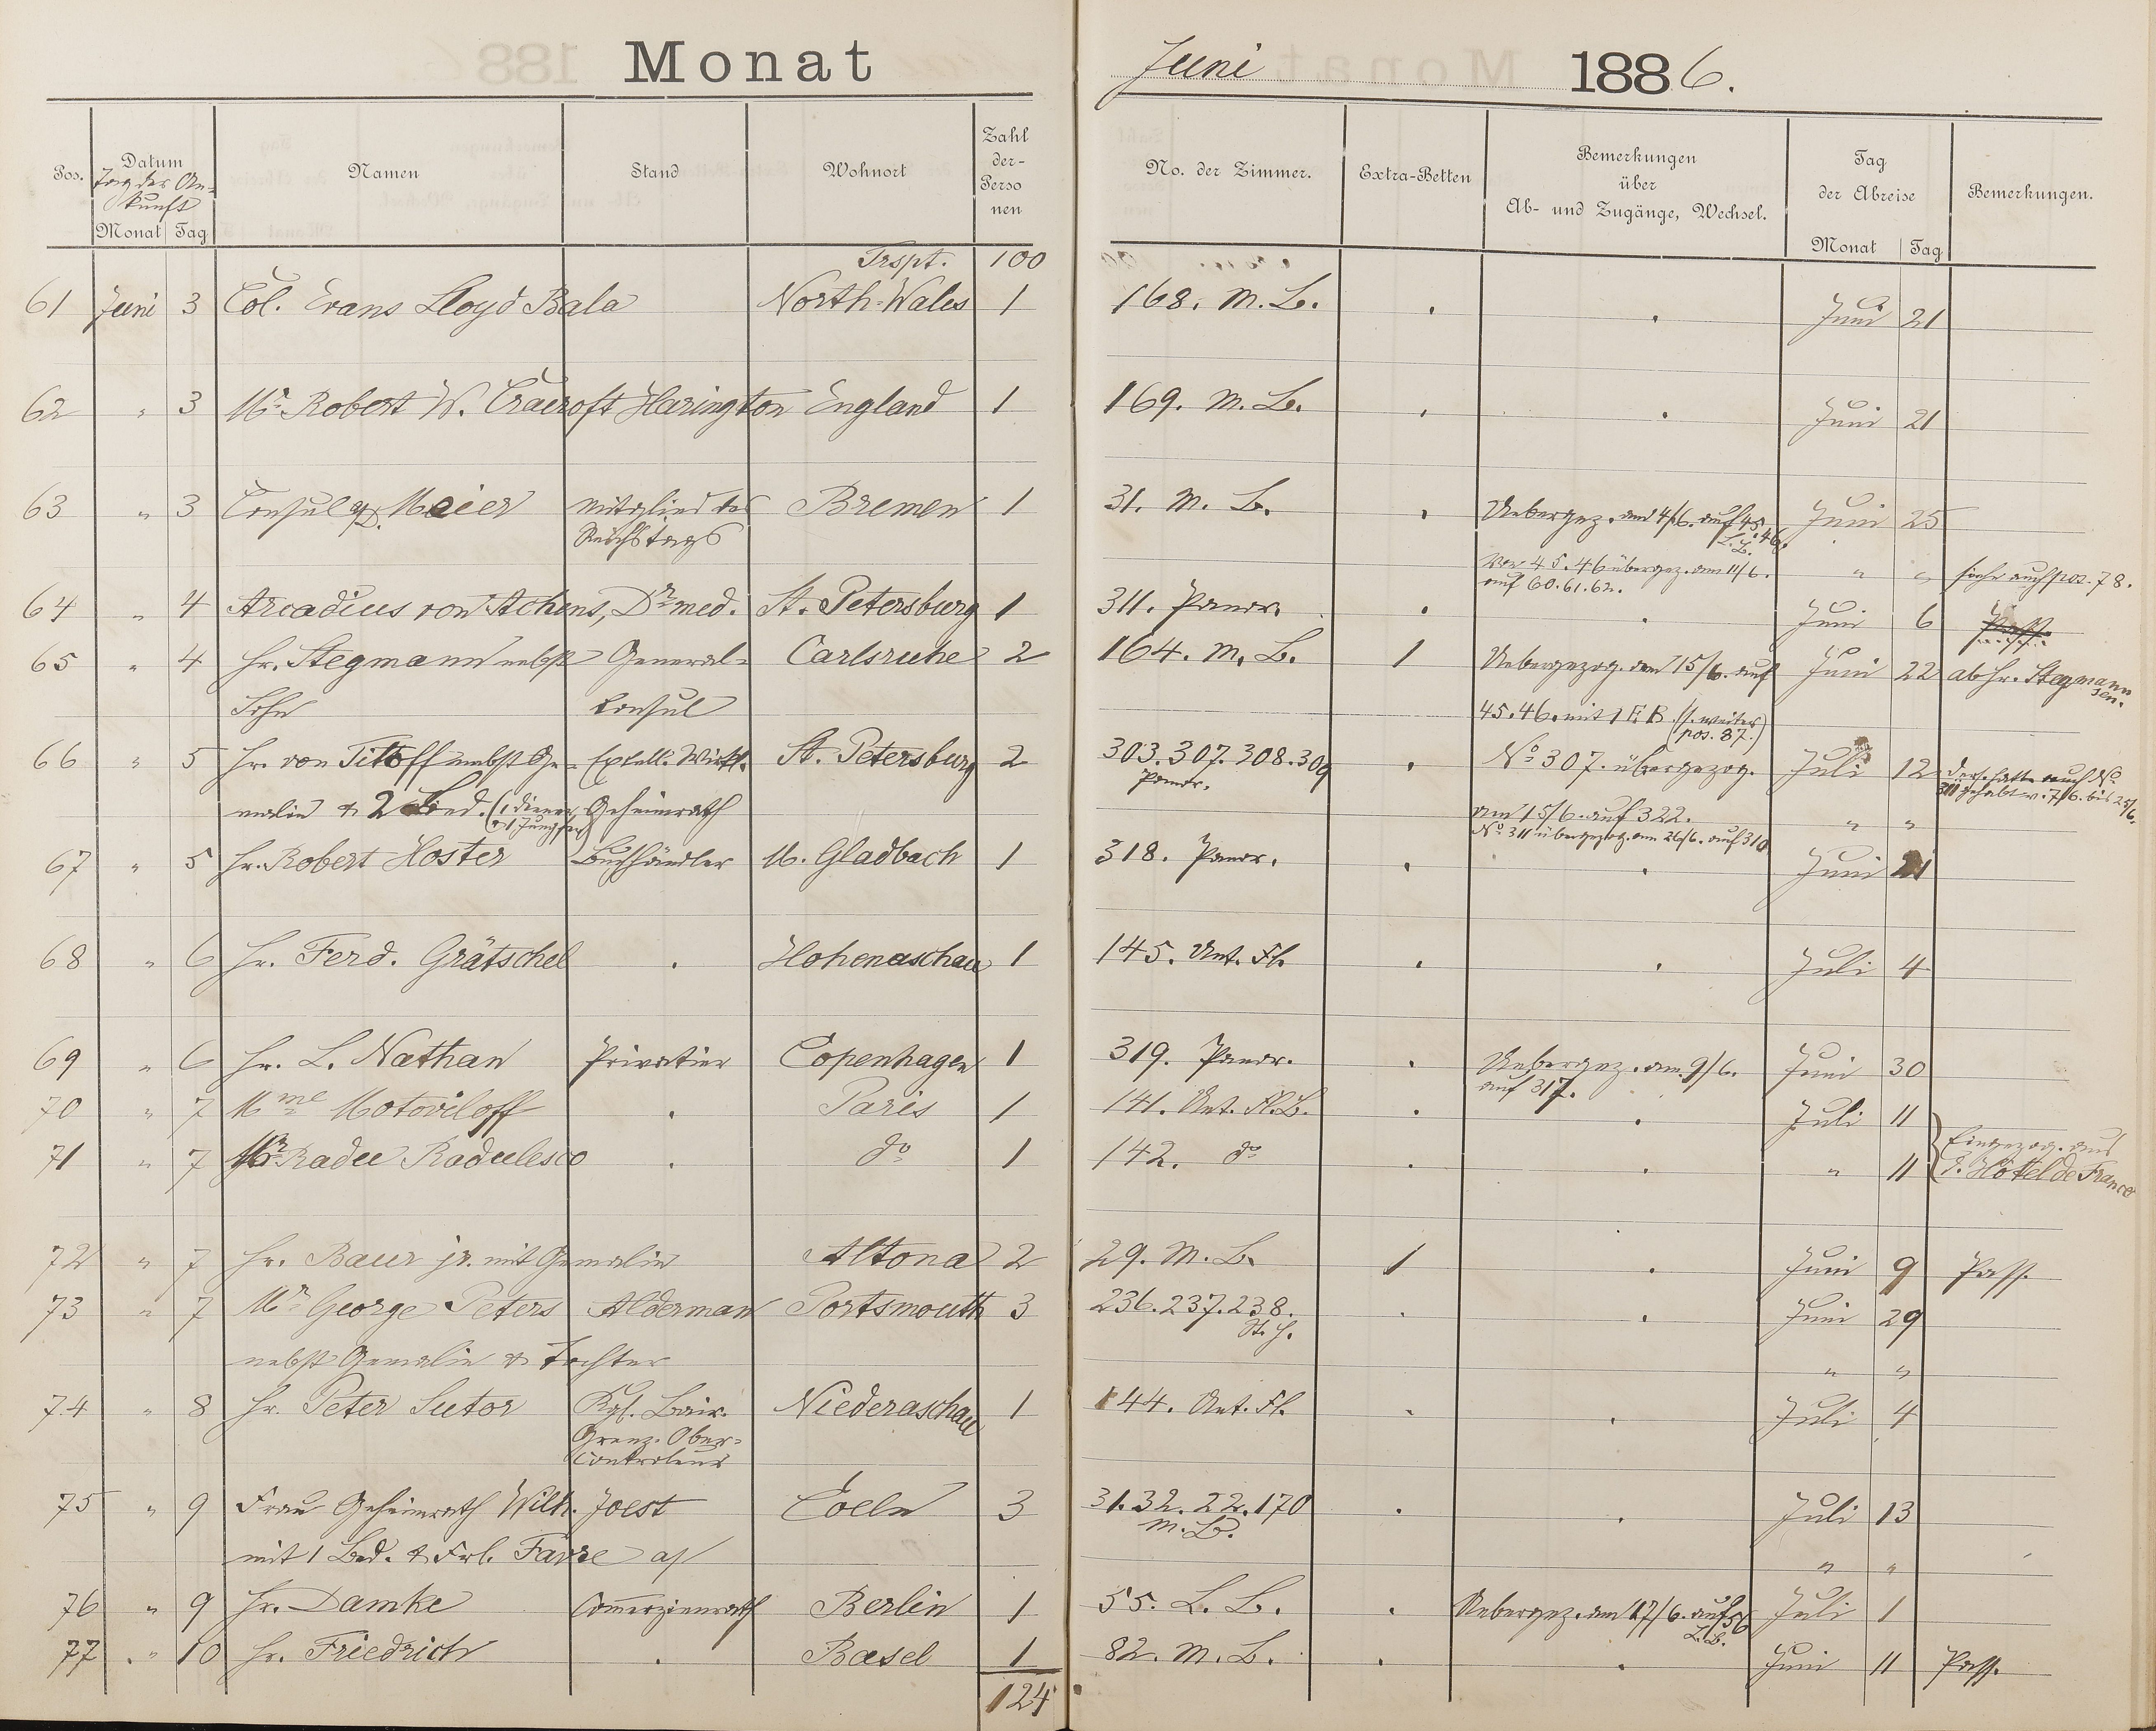 Monat Juni 1886.
Pos. Datum Namen Stand Wohnort Zahl der- Perso nen No. der Zimmer. Extra-Betten Bemerkungen über Ab- und Zugänge, Wechsel. Tag der Abreise Bemerkungen.
Tag der An-
kunft
Monat Tag Monat Tag
Trspt. 100
61 Juni 3 Col. Evans Lloyd Bala North-Wales 1 168. M. B. . . Juni 21
62 " 3 Mr. Robert W. Cracroft Harington England 1 169. M. B. . . Juni 21
63 " 3 Consul Meier Mitglied des Bremen 1 31. M. B. . Uebergez. am 4/6. auf 45.46. Juni 25
Reichstags L. B.
Von 45.46 übergez. am 11/6. " " siehe auch pos. 78.
auf 60.61.62.
64 " 4 Arcadius von Achens, Dr. med. St. Petersburg 1 311. Panor. . . Juni 6 Pass.
65 " 4 Hr. Stegmann nebst General- Carlsruhe 2 164. M. B. 1 Uebergezog. am 15/6. auf Juni 22 ab Hr. Stegmann
sen.
Sohn Consul 45.46. mit 1 E. B. (s. weiter
pos. 87.)
66 " 5 Hr. von Titoff nebst Ge- Excell. Wirkl. St. Petersburg 2 303.307.308.309 . No. 307. übergezog. Juli 12 ders. hatte auch No.
Panor. 311 gehabt v. 7/6. bis 25/6.
malin & 2 Bed. (1 Diener Geheimrath am 15/6. auf 322. " "
& 1 Jungfer) No. 311 übergezog. am 26/6. auf 310
67 " 5 Hr. Robert Hoster Buchhändler M. Gladbach 1 318. Panor. . . Juni 21
68 " 6 Hr. Ferd. Grätschel . Hohenaschau 1 145. Unt. Fl. . . Juli 4
69 " 6 Hr. L. Nathan Privatier Copenhagen 1 319. Panor. . Uebergez. am 9/6. Juni 30
auf 317.
70 " 7 Mme Motoviloff . Paris 1 141. Unt. Fl. B. . . Juli 11
71 " 7 Mr. Radu Radulesco . do 1 142. do . . " 11 Eingezog. aus
d. Hôtel de France
72 " 7 Hr. Baur jr. mit Gemalin Altona 2 29. M. B. 1 . Juni 9 Pass.
73 " 7 Mr. George Peters Alderman Portsmouth 3 236.237.238. . . Juni 29
St. H.
nebst Gemalin & Tochter " "
74 " 8 Hr. Peter Sutor Kgl. Bair. Niederaschau 1 144. Unt. Fl. . . Juli 4
Grenz-Ober-
Controleur
75 " 9 Frau Geheimrath Wilh. Joest Coeln 3 31.32.22.170 . . Juli 13
M. B.
mit 1 Bed. & Frl. Favre " "
76 " 9 Hr. Damke Commerzienrath Berlin 1 55. L. B. . Uebergez. am 17/6. auf 56 Juli 1
L. B.
77 " 10 Hr. Friedrich . Basel 1 82. M. B. . . Juni 11 Pass.
124